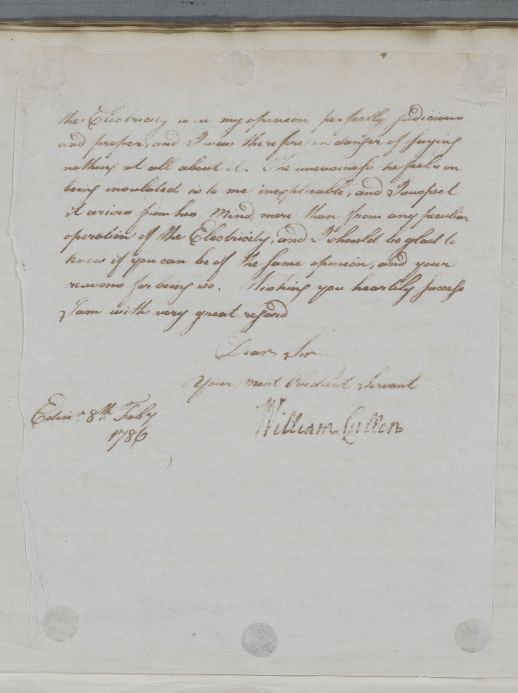 the Electricity is in my opinion perfectly judicious
and proper, and I was therefore in danger of saying
nothing at all about it. The uneasiness he feels on
being insulated is to me inexplicable, and I suspect
it arises from his Mind, more than from any peculiar
operation of the Electricity, and I should be glad to
know if you can be of the same opinion, and your
reasons for being so. Wishing you heartily success
I am with very great regard
Dear Sir
Your most Obedient Servant
William Cullen
Edinr. 8th Feby
1786